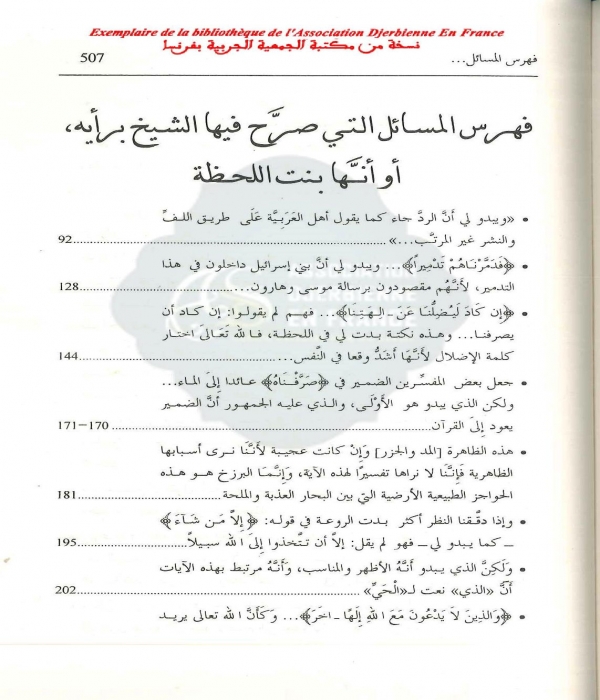 Exemplaire de la bibliothèque de l'Association Djerbienne En France
نسخة من مكتبة الجمعية الجربية بفرنسا
فهرس المسائل... 507
فهرس المسائل التي صرَّح فيها الشيخ برأيه،
أو أنَّها بنت اللحظة
• «ويبدو لي أنَّ الردَّ جاء كما يقول أهل العَرَبِيَّة عَلَى طريق اللفِّ
والنشر غير المرتَّب...» 92
• ﴿فَدَمَّرْنَاهُمْ تَدْمِيراً﴾... ويبدو لي أنَّ بني إسرائيل داخلون في هذا
التدمير، لأَنَّهُم مقصودون برسالة موسى وهارون... 128
• ﴿إِن كَادَ لَيُضِلُّنَا عَنَ ـالِهَتِنَا﴾... فهم لم يقولوا: إن كاد أن
يصرفنا... وهذه نكتة بدت لي في اللحظة، فـالله تَعَالَى اختار
كلمة الإضلال لأَنَّهَا أشدُّ وقعا في النَّفس... 144
• جعل بعض المفسِّرين الضمير في ﴿صَرَّفْنَاهُ﴾ عائدا إِلَى الماء...
ولكن الذي يبدو هو الأَوْلَى، والذي عليه الجمهور أنَّ الضمير
يعود إِلَى القرآن 170–171
• هذه الظاهرة [المد والجزر] وَإِنْ كانت عجيبة لأَنَّنَا نرى أسبابها
الظاهرية فَإِنَّنَا لا نراها تفسيرًا لهذه الآية، وَإِنَّمَا البرزخ هـو هـذه
الحواجز الطبيعية الأرضية التي بين البحار العذبة والملحة 181
• وإذا دقَّقنا النظر أكثر بـدت الروعة في قوله: ﴿إِلاَّ مَن شَآءَ﴾
ـ كما يبدو لي ـ فهو لم يقل: إلاَّ أن تتَّخذوا إِلَى الله سبيلاً... 195
• وَلَكِنَّ الذي يبدو أَنَّهُ الأظهر والمناسب، وَأَنَّهُ مرتبط بهذه الآيات
أَنَّ «الذي» نعت لـ«الْحَيِّ» 202
• ﴿وَالذِينَ لاَ يَدْعُونَ مَعَ اللهِ إِلَهًا ـاخَرَ﴾... وكَأَنَّ الله تعالى يريـد